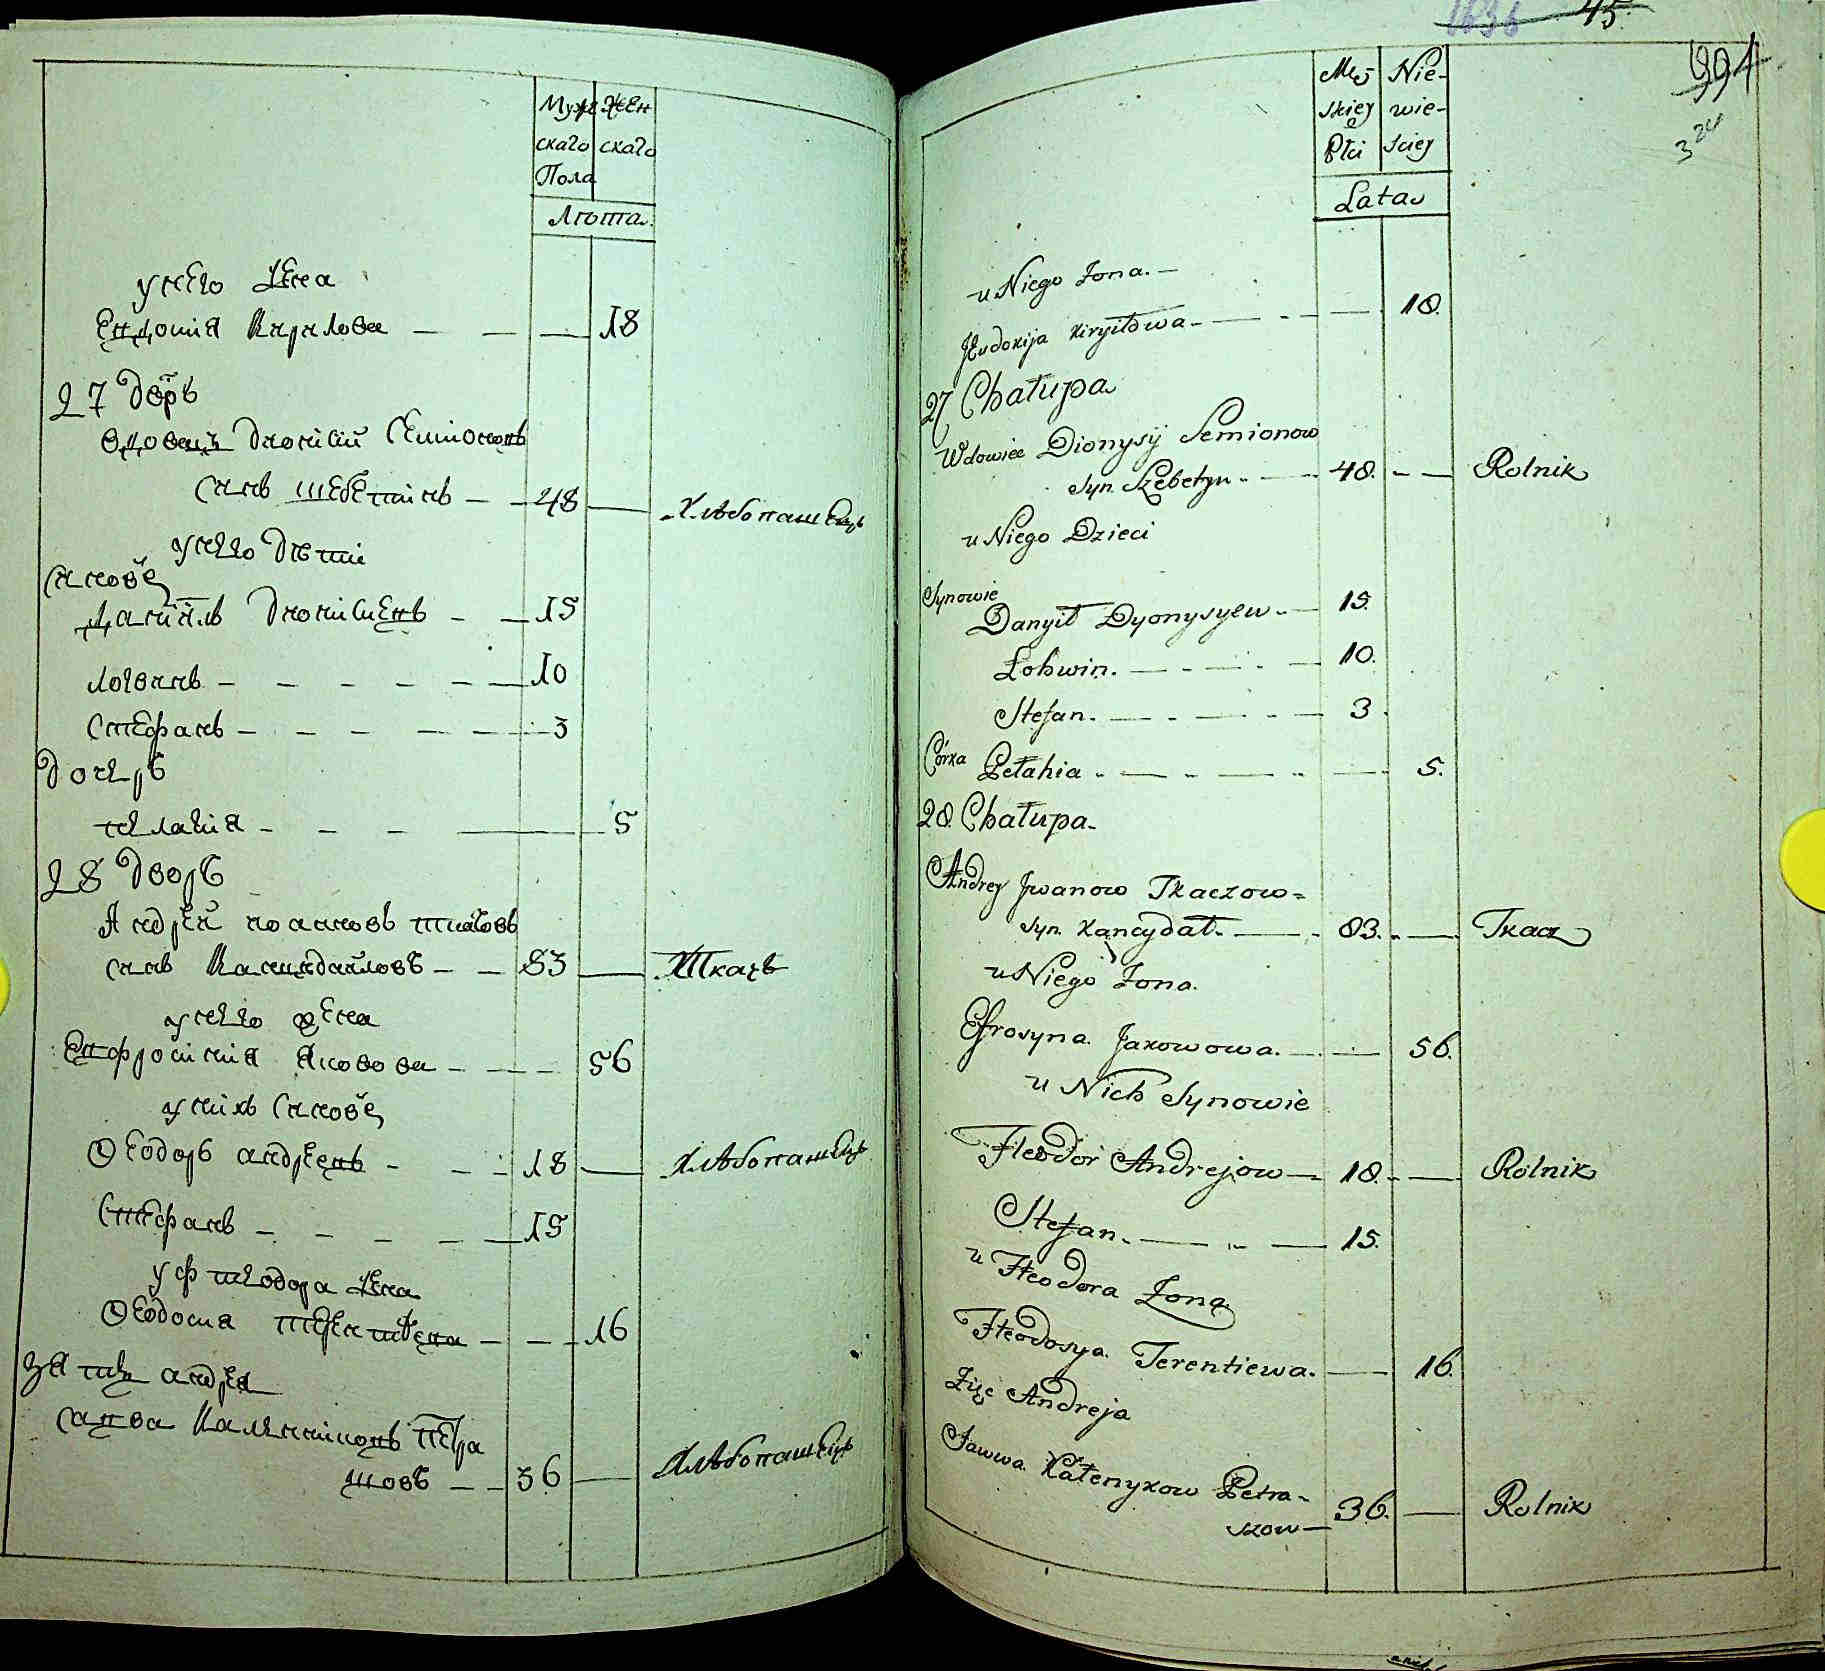 Муже Жен
скаго скаго
Пола
Лѣта
у него Жена
Евдокия Кирилова — — — 18
27 дворъ
вдовецъ Дионисий Семионовъ
сынъ Шебетинъ — — 48 — Хлѣбопашецъ
у него дѣти
Сыновѣ
Данїилъ Дионисиевъ — — 15
Логвинъ — — — — — 10
Стефанъ — — — — — 3
дочерь
пелагия — — — — 5
28 дворъ
Андрей Иоанновъ Ткачовъ
сынъ — — 83 — Ткачъ
у него жена
Евфросиния Яковова — — — 56
у нихъ Сыновѣ
Ѳеодоръ андреевъ — — — 18 — Хлѣбопашецъ
Стефанъ — — — — — 15
у Фтеодора Жена
Ѳеодосия терентиева — — — 16
Зять андрея
Савва Калениковъ Петра
шовъ — — 36 — Хлѣбопашецъ
45.
991
324
Męz- Nie-
skiey wie-
Płci sciey
Lata
u Niego Zona. —
Jeudokija Kiryłowa. — — — 18.
27 Chałupa
Wdowiec Dionysij Semionow
syn Szebetyn — — 48. — — Rolnik
u Niego Dzieci
Synowie
Danyił Dyonysyew. — 15.
Lohwin. — — — — 10.
Stefan. — — — — 3.
Córka Pełahia — — — — 5.
28. Chałupa.
Andrey Iwanow Tkaczow=
syn Kancydał. — — 83. — Tkacz
u Niego Zona.
Efrosyna Jakowowa. — — 56.
u Nich Synowie
Fteodor Andrejow — 18. — — Rolnik
Stefan. — — — 15.
u Fteodora Zona
Fteodosya Terentiewa. — — 16.
Zięc Andreja
Sawwa Kałenykow Petra-
szow — 36. — Rolnik